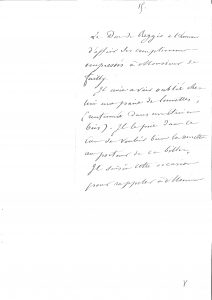 Le Duc de Reggio a l'honneur
d'offrir ses complimens
empressés à Monsieur de
Il croit avoir oublié chez
lui une paire de lunettes,
(renfermée dans un étui en
bois). Il le prie dans ce
cas de vouloir bien la remettre
au porteur de ce billet,
Il saisit cette occasion
pour rappeler à Monsieur